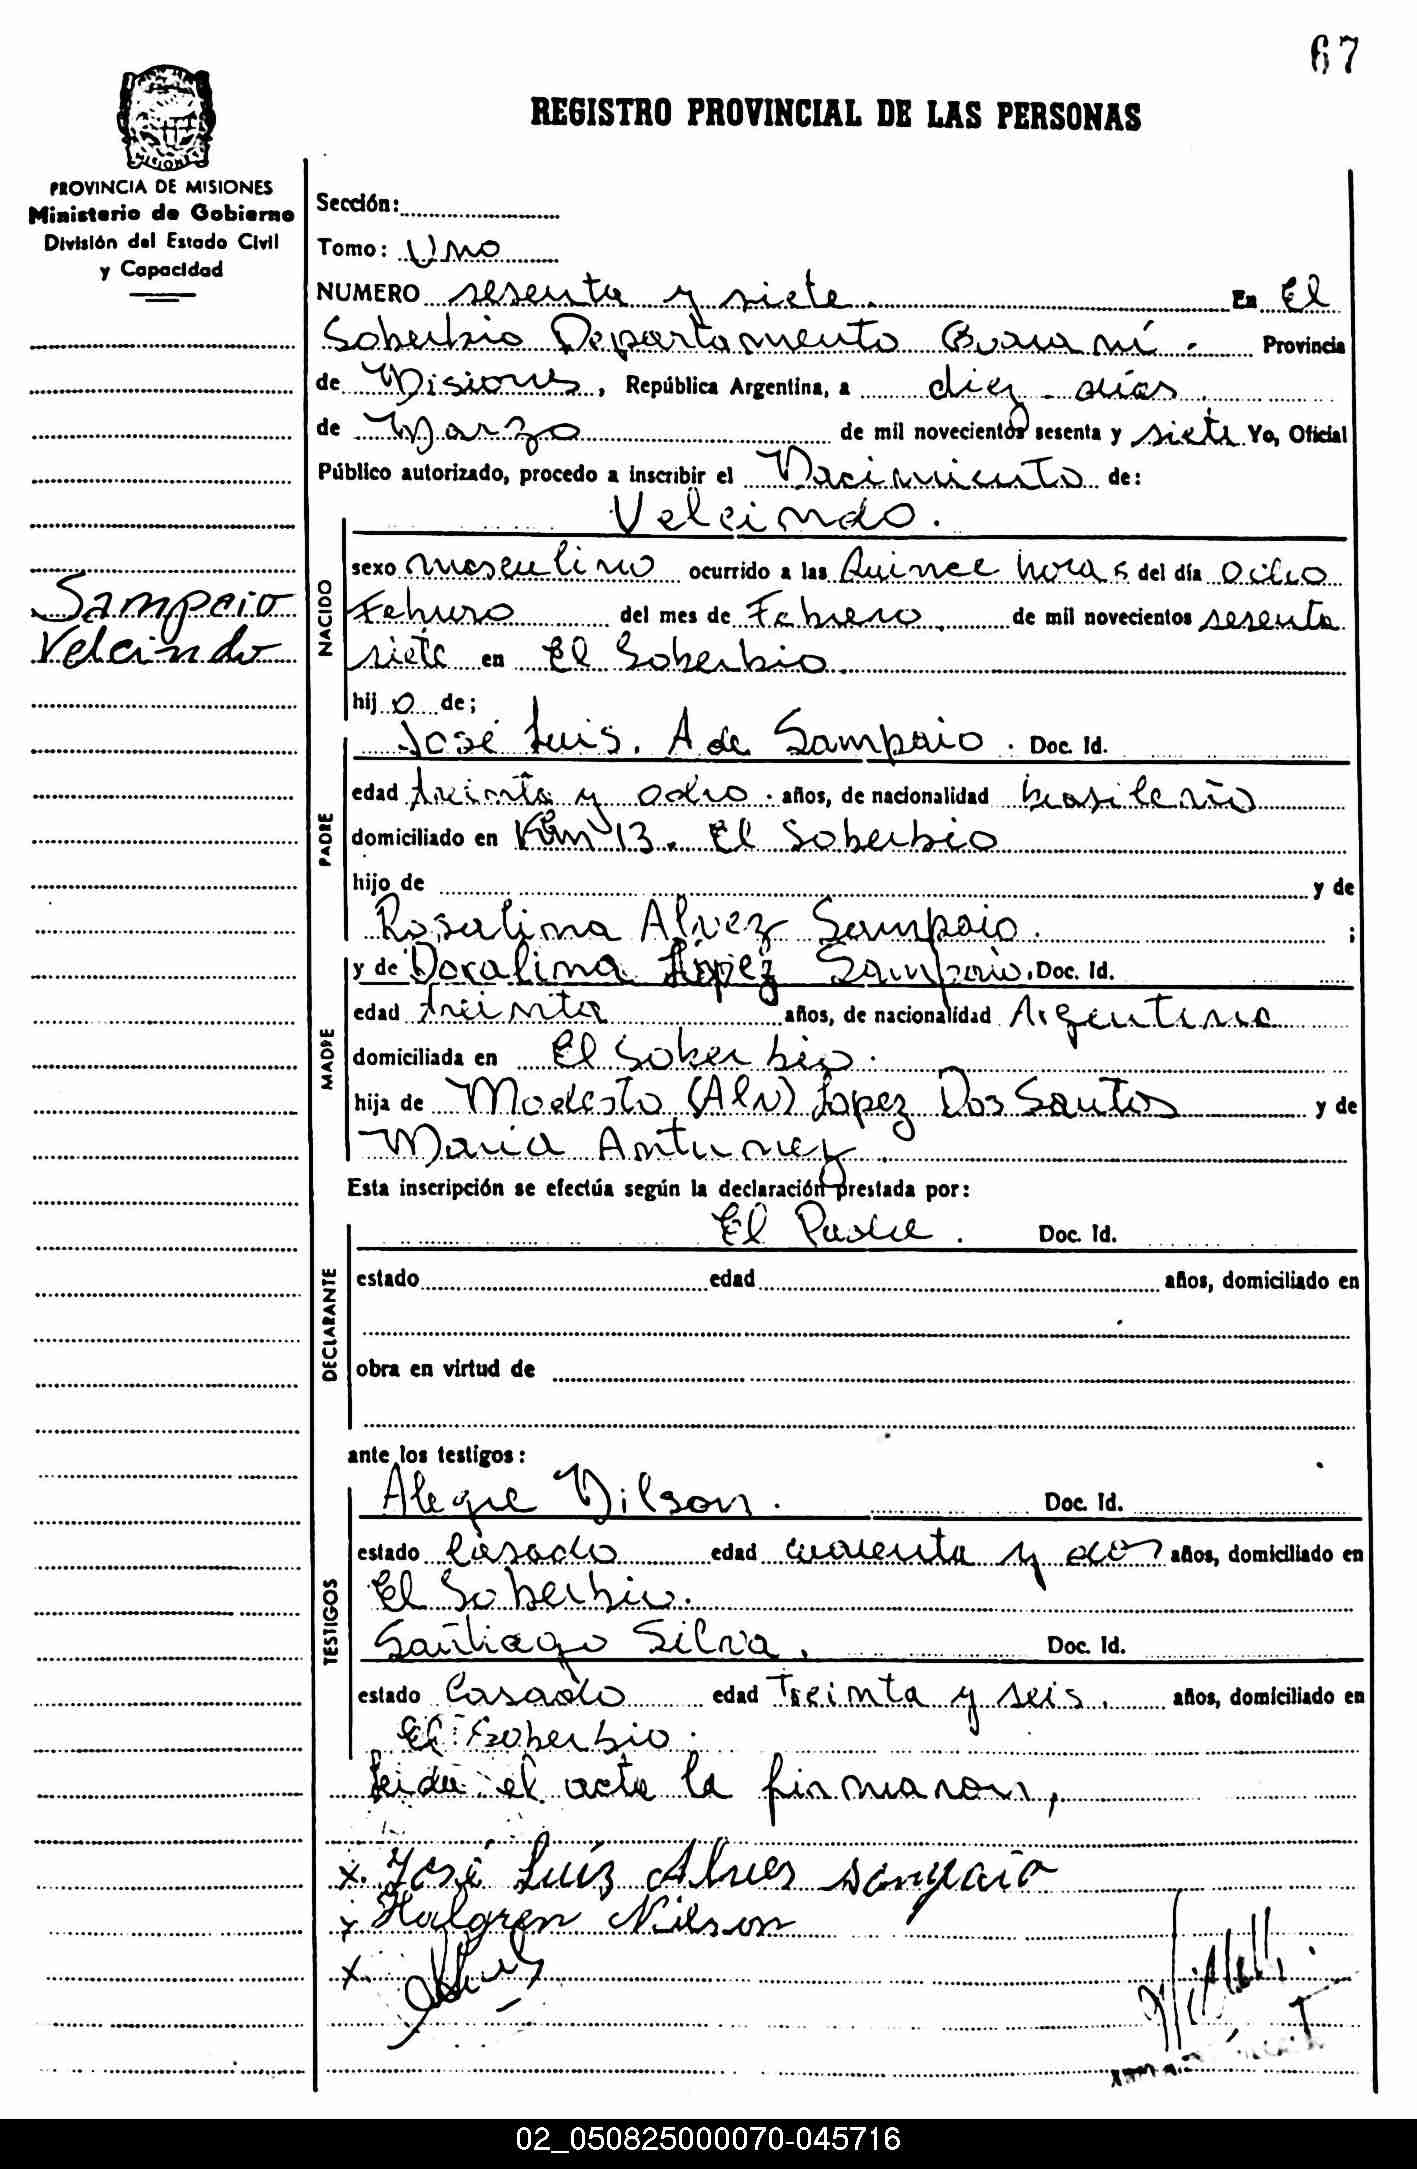 67
REGISTRO PROVINCIAL DE LAS PERSONAS
MISIONES
PROVINCIA DE MISIONES
Ministerio de Gobierno
División del Estado Civil
y Capacidad
Sampaio
Velcindo
Sección:
Tomo: Uno
NUMERO sesenta y siete. En El
Soberbio Departamento Guaraní. Provincia
de Misiones, República Argentina, a diez días
de Marzo de mil novecientos sesenta y siete Yo, Oficial
Público autorizado, procedo a inscribir el Nacimiento de:
Velcindo.
NACIDO
sexo masculino ocurrido a las Quince horas del día Ocho
Febrero del mes de Febrero de mil novecientos sesenta
siete en El Soberbio.
hij o de;
PADRE
José Luis. A de Sampaio. Doc. Id.
edad treinta y ocho. años, de nacionalidad brasileño
domiciliado en Km 13. El Soberbio
hijo de y de
Rosalina Alvez Sampaio. ;
MADRE
y de Doralina López Sampaio. Doc. Id.
edad treinta años, de nacionalidad Argentina
domiciliada en El Soberbio.
hija de Modesto (Alv) Lopez Dos Santos y de
Maria Antunez.
Esta inscripción se efectúa según la declaración prestada por:
DECLARANTE
El Padre. Doc. Id.
estado edad años, domiciliado en
obra en virtud de
ante los testigos:
TESTIGOS
Alegre Nilson. Doc. Id.
estado Casado edad cuarenta y dos años, domiciliado en
El Soberbio.
Santiago Silva. Doc. Id.
estado Casado edad Treinta y seis. años, domiciliado en
El Soberbio.
Leida el acta la firmaron,
x. José Luíz Alves sanpaio
x Halgren Nilson
x.
02_050825000070-045716